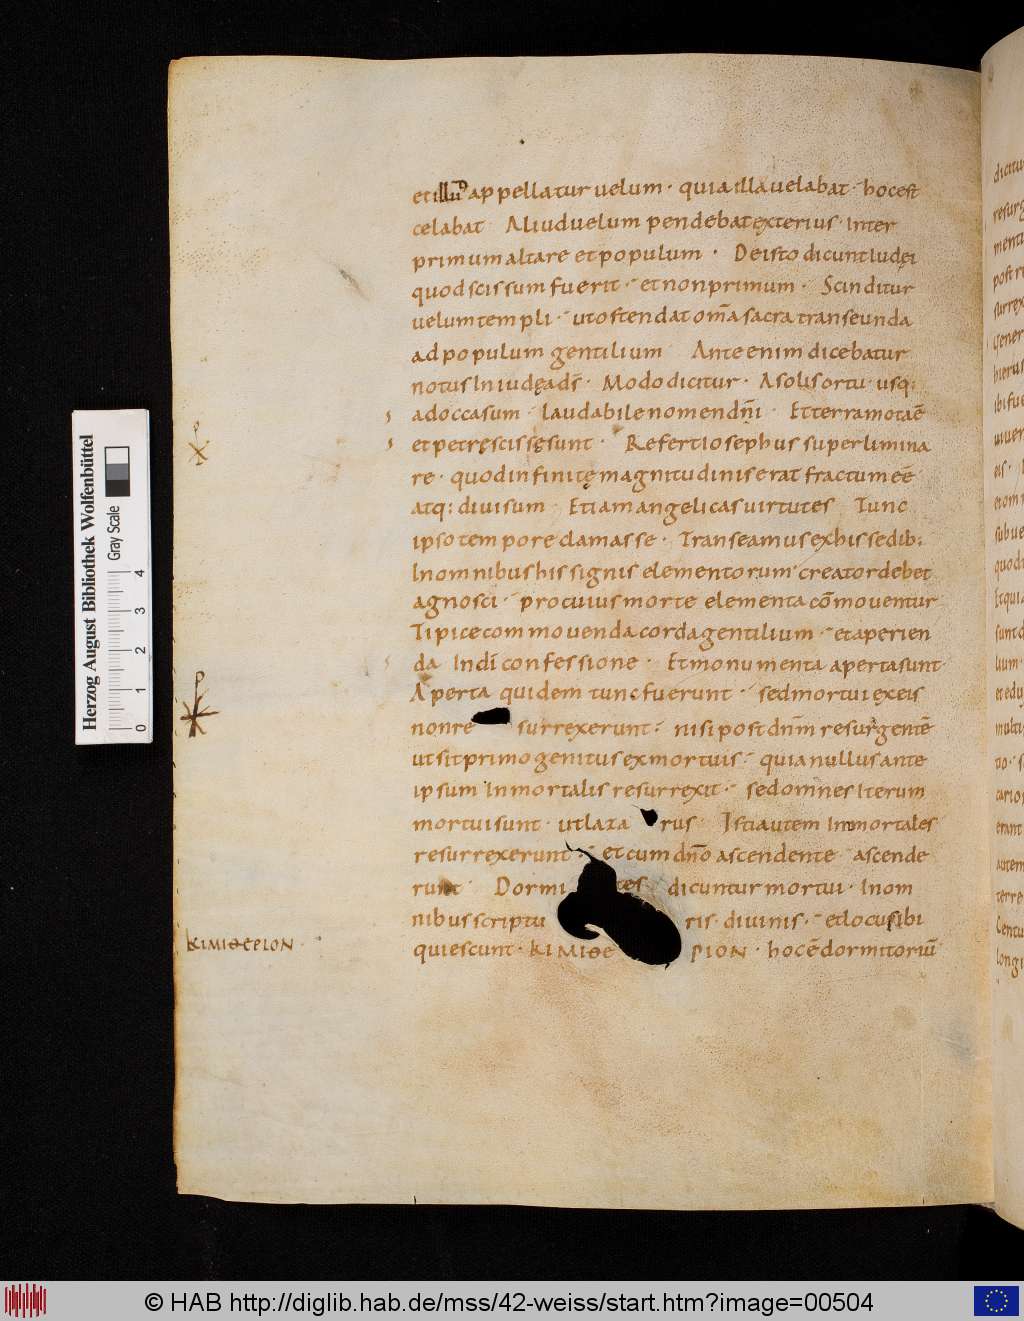 et illud appellatur uelum · quia illa uelabat · hoc est
celabat · Aliud uelum pendebat exterius · Inter
primum altare et populum · De isto dicunt Iudęi
quod scissum fuerit · et non primum · Scinditur
uelum templi · ut ostendat om̄a sacra transeunda
ad populum gentilium Ante enim dicebatur
notus In iudęa dš · Modo dicitur · A solis ortu · usq:
ad occasum · laudabile nomen dñi · Et terra mota ē
et petrę scissę sunt · Refert Iosephus superlimina
re · quod infinitę magnitudinis erat fractum eē
atq: diuisum · Etiam angelicas uirtutes Tunc
ipso tempore clamasse · Transeamus ex his sedib:
In omnibus his signis elementorum · creator debet
agnosci · pro cuius morte elementa cōmouentur
Tipice commouenda corda gentilium · et aperien
da In dī confessione · Et monumenta aperta sunt
Aperta quidem tunc fuerunt · sed mortui ex eis
non re surrexerunt · nisi post dnm̄ resurgentē
ut sit primogenitus ex mortuis · quia nullus ante
ipsum Inmortalis resurrexit · sed omnes Iterum
mortui sunt · ut laza rus · Isti autem Inmortales
resurrexerunt · et cum dnō ascendente ascende
runt Dormi tes dicuntur mortui · In om
nibus scriptu ris · diuinis · et locus ibi
KIMIΘEPION
quiescunt · KIMIΘE PION · hoc ē dormitoriū
Herzog August Bibliothek Wolfenbüttel
Gray Scale
0 1 2 3 4
© HAB http://diglib.hab.de/mss/42-weiss/start.htm?image=00504